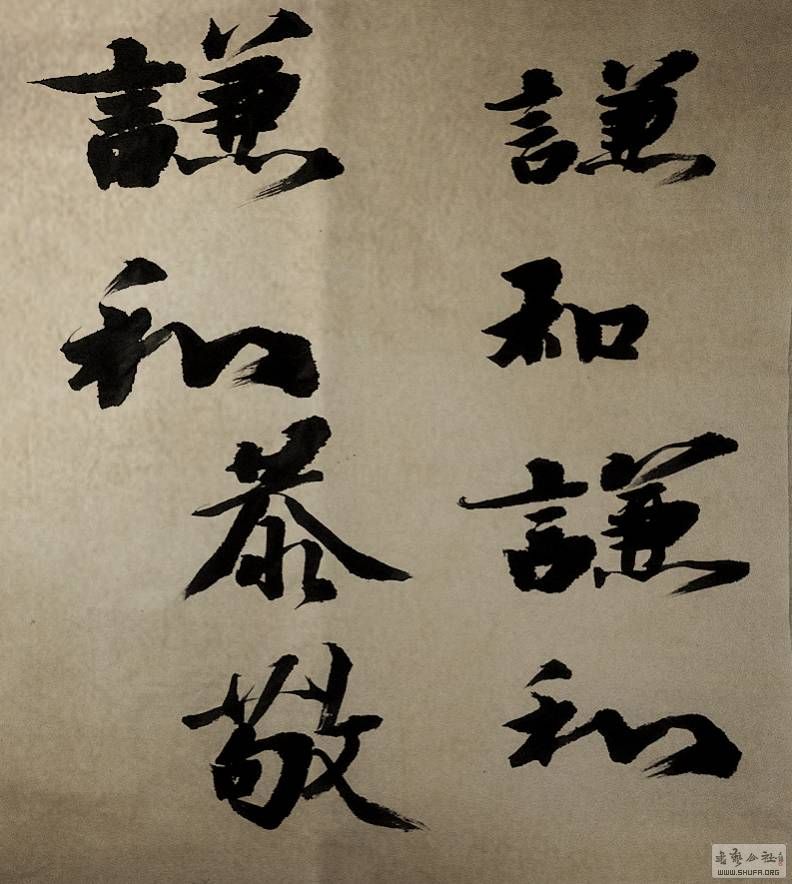 謙和謙和
謙和恭敬
書藝公社
WWW.SHUFA.ORG